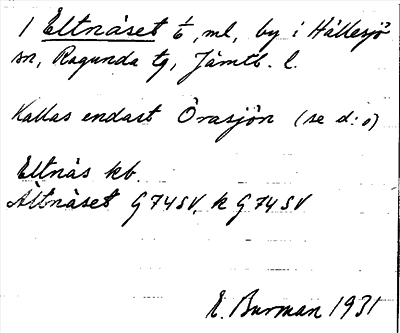 1 Eltnäset ml, by i Hällesjö
sn, Ragunda tg, Jämtl. l.
Kallas endast Örasjön (se d:o)
Eltnäs kb.
Ältnäset G74SV, k G74SV
E. Burman 1931